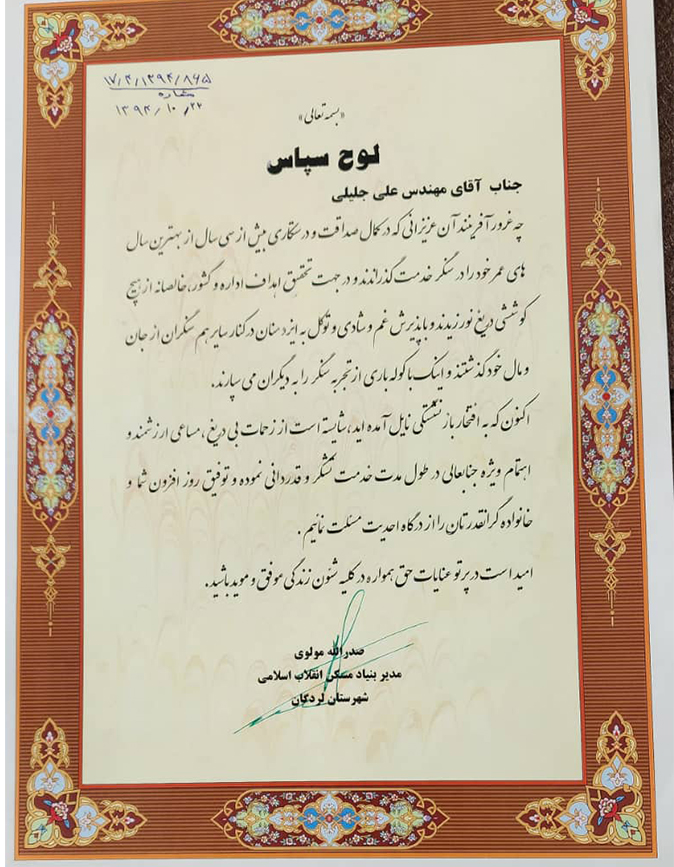 ۱۷/۴/۱۳۹۴/۸۶۵
شماره
۱۳۹۴/۱۰/۲۲
«بسمه تعالی»
لوح سپاس
جناب آقای مهندس علی جلیلی
چه غرور آفرینند آن عزیزانی که در کمال صداقت و درستکاری بیش از سی سال از بهترین سال
های عمر خود را در سنگر خدمت گذراندند و در جهت تحقیق اهداف اداره و کشور، خالصانه از هیچ
کوششی دریغ نورزیدند و با پذیرش غم و شادی و توکل به ایزد منان در کنار سایر هم سنگران از جان
و مال خود گذشتند و اینک با کوله باری از تجربه سنگر را به دیگران می سپارند.
اکنون که به افتخار بازنشستگی نایل آمده اید، شایسته است از زحمات بی دریغ، مساعی ارزشمند و
اهتمام ویژه جنابعالی در طول مدت خدمت تشکر و قدردانی نموده و توفیق روز افزون شما و
خانواده گرانقدرتان را از درگاه احدیت مسئلت نمائیم.
امید است در پرتو عنایات حق همواره در کلیه شئون زندگی موفق و موید باشید.
صدراله مولوی
مدیر بنیاد مسکن انقلاب اسلامی
شهرستان لردگان